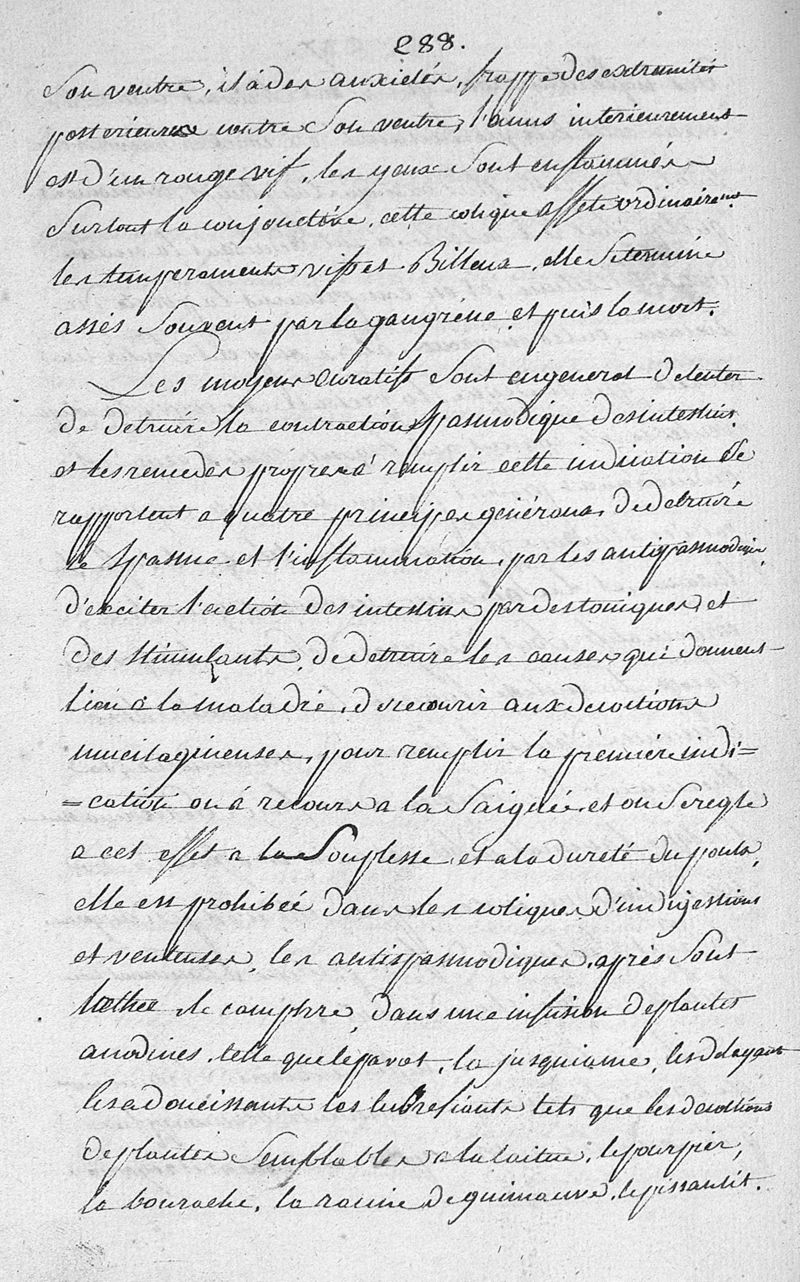 288.
Son ventre, il à des anxietés, frappe des extremités
posterieures contre Son ventre, l'anus interieurement
est d'un rouge vif, les yeux Sont enflammés
Surtout la conjonctive, cette colique affecte ordinairement
les temperaments vifs et Billeux, elle Se termine
assés Souvent par la gangréne et puis la mort.
Les moyens curatifs Sont en general de tenter
de detruire la contraction Spasmodique des intestins
et les remedes propres à remplir cette indication Se
rapportent a quatre principes générous, de detruire
le Spasme et l'inflammation, par les antispasmodiques
d'exciter l'action des intestins par des toniques et
des Stimulants, de detruire les causes qui donnent
lieu à la maladie, de recourir aux decoctions
mucilagineuses, pour remplir la premiére indi=
=cation on à recours a la Saignée, et on Se regle
a cet effet a la Souplesse et a la dureté du pouls,
elle est prohibeé dans les coliques d'indigestions
et venteuses, les antispasmodiques, après Sont
l'æther le camphre, dans une infusion de plantes
anodines, telle que le pavot, la jusquiame, les delayants
les adoucissants les lubrefiants tels que les decoctions
de plantes Semblables a la laitue, le pourpier,
la bourache, la racine de guimauve, le pissanlit.